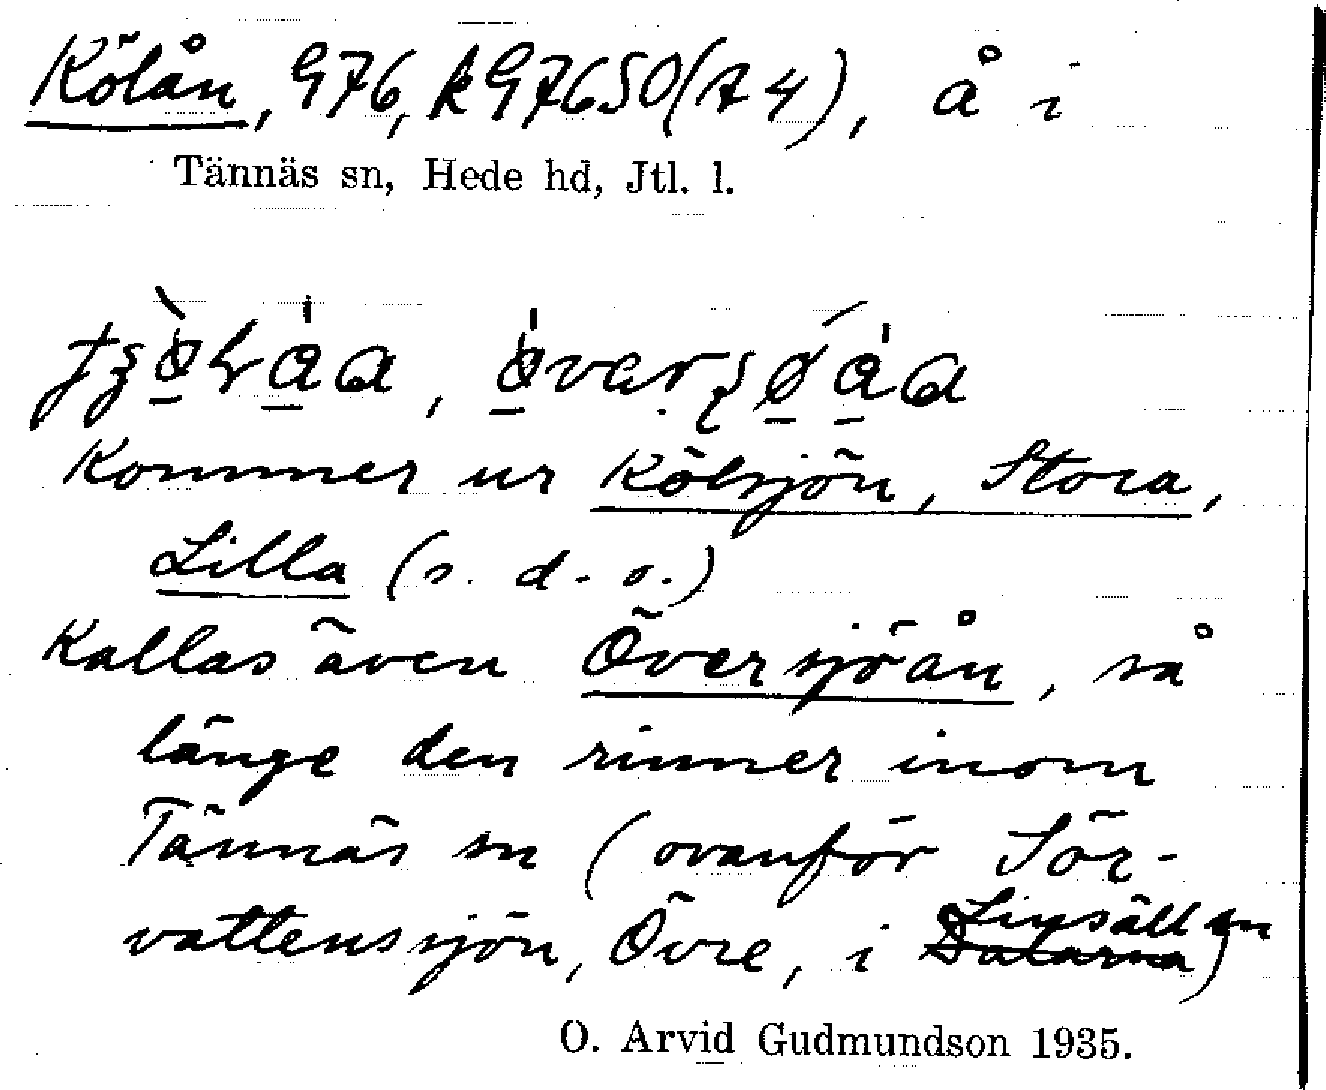 Kölån, 976, k97650(A4), å i
Tännäs sn, Hede hd, Jtl. l.
Kommer ur Kölsjön, Stora,
Lilla (s. d. o.)
Kallas även Översjöån, så
länge den rinner inom
Tännäs sn (ovanför Sör-
vattenssjön, Övre, i Linsäll sn
Dalarna)
O. Arvid Gudmundson 1935.